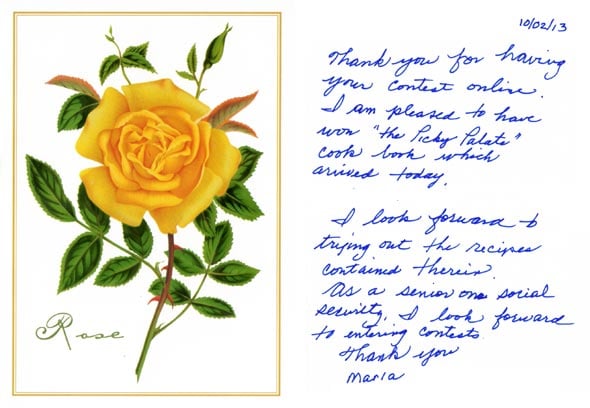 Rose
10/02/13
Thank you for having
your contest online.
I am pleased to have
won "the Picky Palate"
cook book which
arrived today.
I look forward to
trying out the recipes
contained therein.
As a senior on social
security, I look forward
to entering contests.
Thank you
Maria